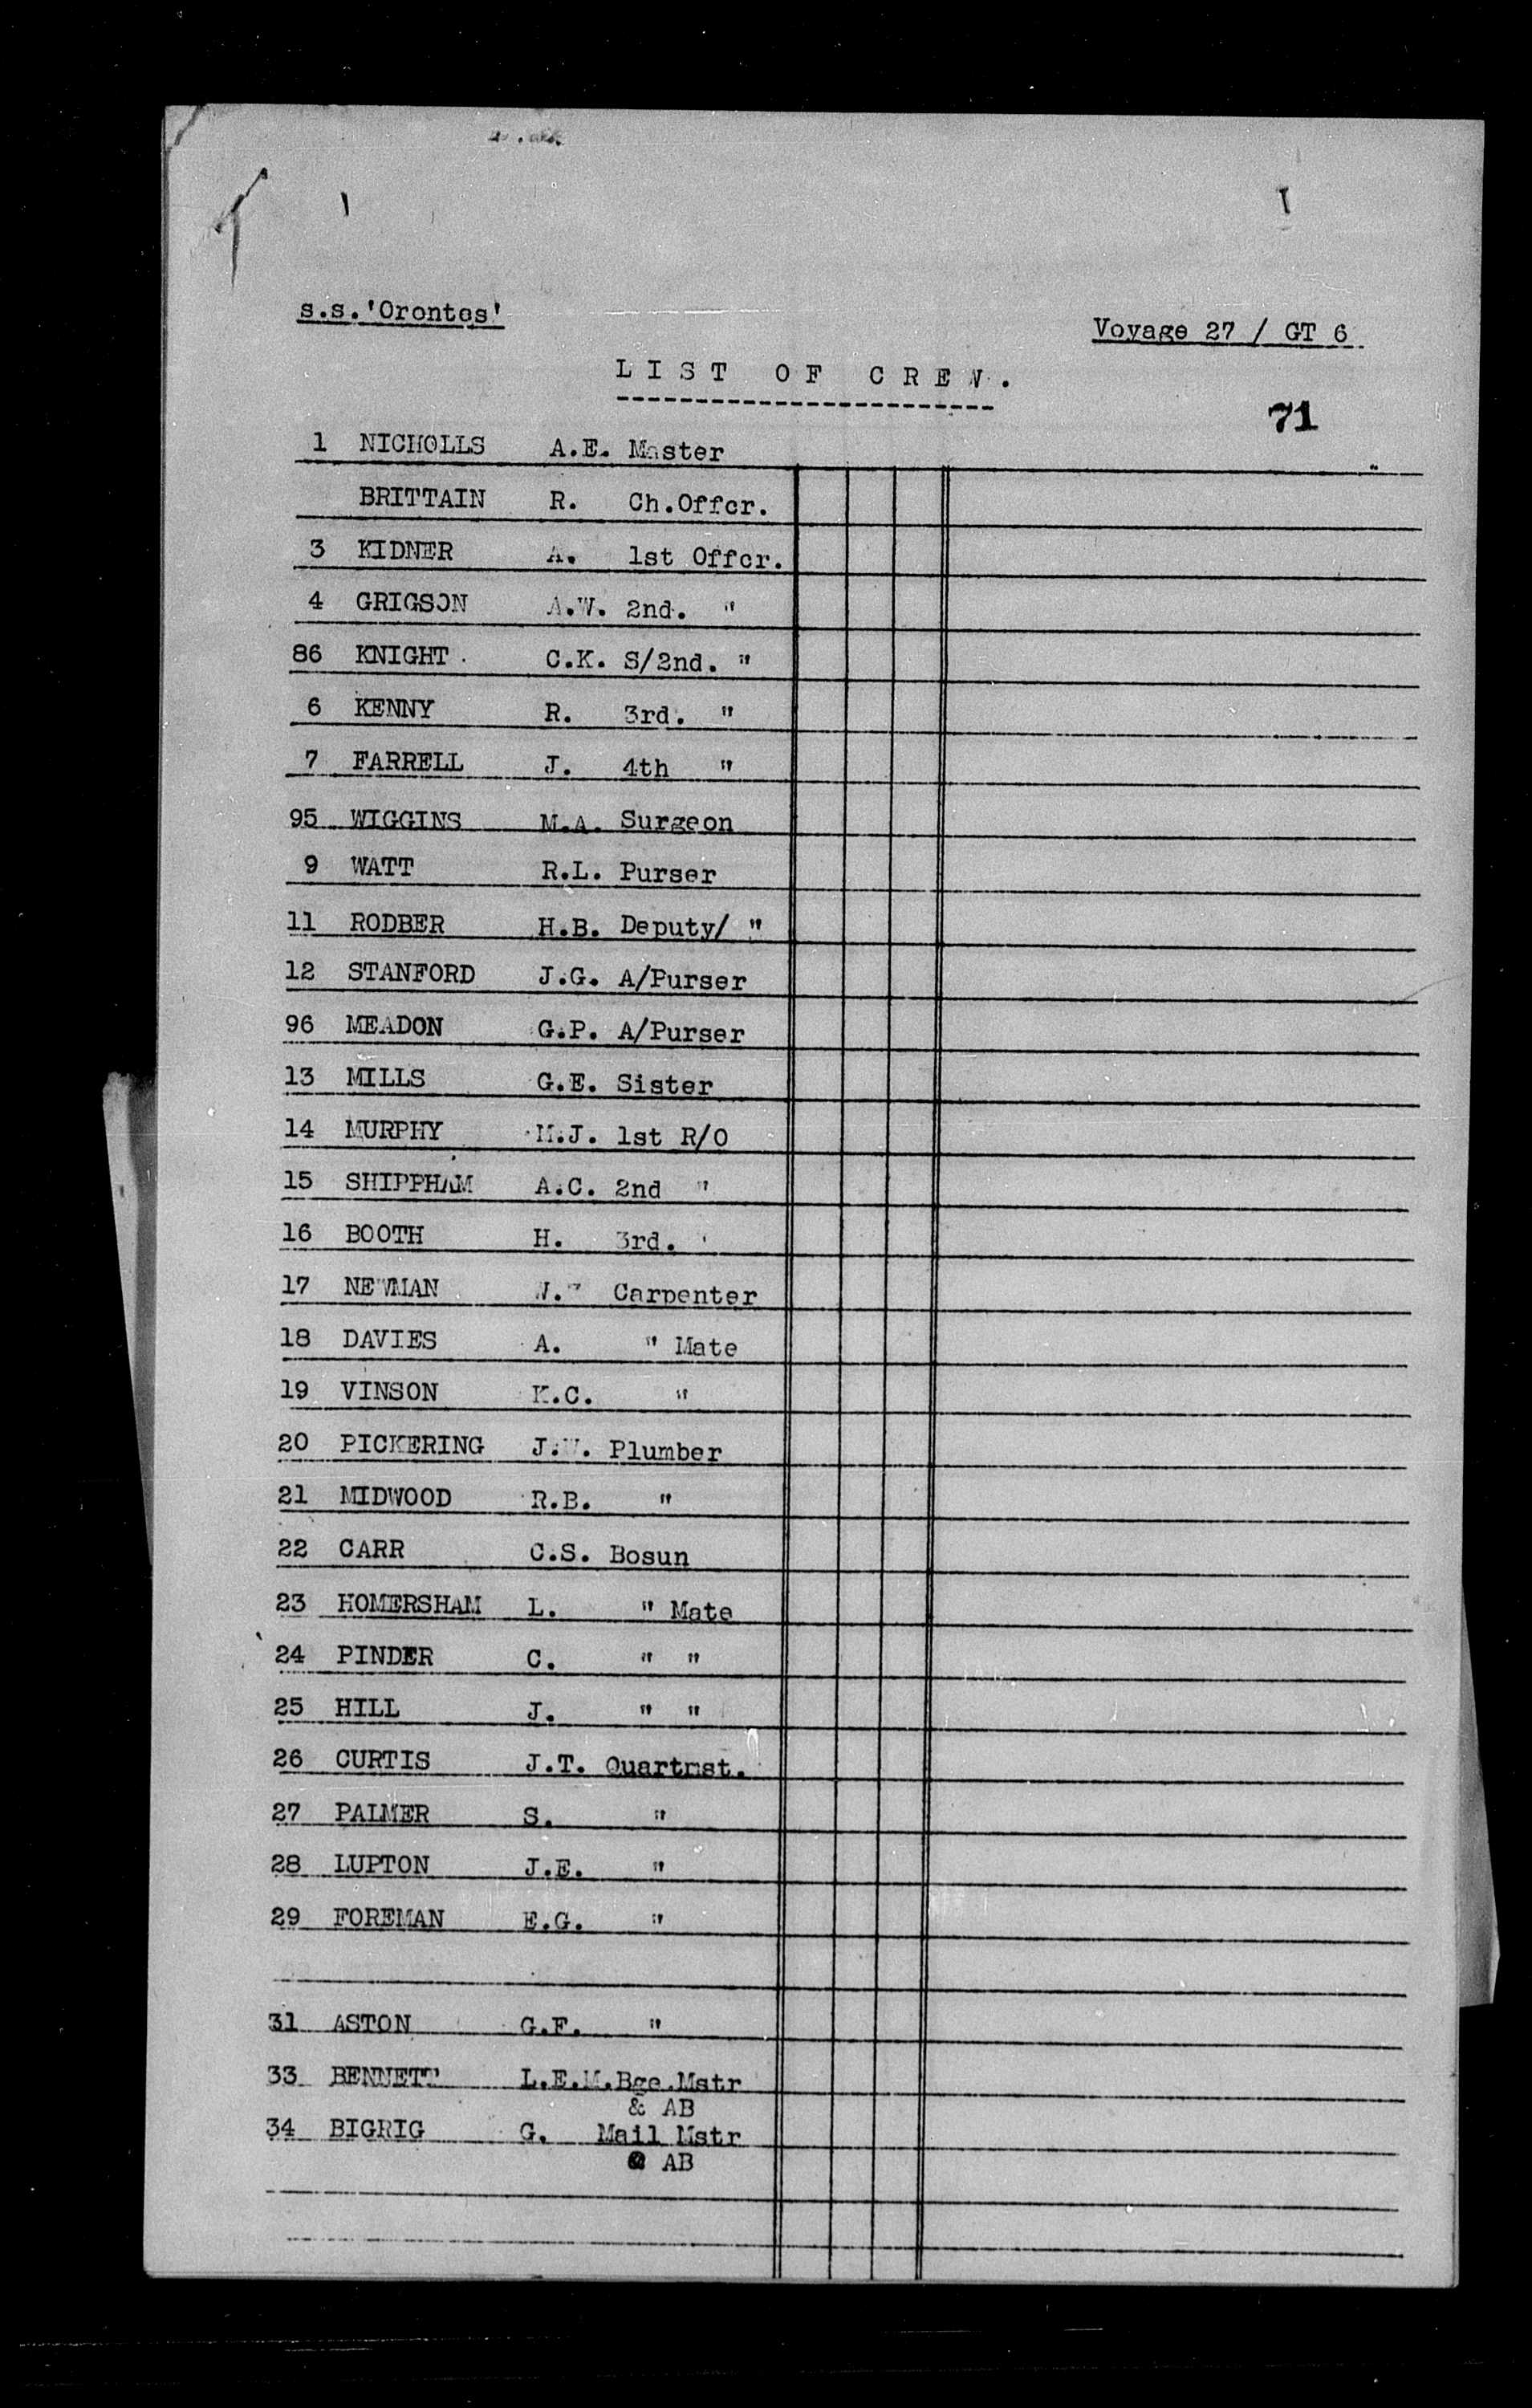 s.s.'Orontes'
Voyage 27 / GT 6.
LIST OF CREW.
71
1 NICHOLLS A.E. Master
BRITTAIN R. Ch.Offcr.
3 KIDNER A. 1st Offcr.
4 GRIGSON A.W. 2nd. "
86 KNIGHT C.K. S/2nd. "
6 KENNY R. 3rd. "
7 FARRELL J. 4th "
95 WIGGINS M.A. Surgeon
9 WATT R.L. Purser
11 RODBER H.B. Deputy/ "
12 STANFORD J.G. A/Purser
96 MEADON G.P. A/Purser
13 MILLS G.E. Sister
14 MURPHY M.J. 1st R/O
15 SHIPPHAM A.C. 2nd "
16 BOOTH H. 3rd. "
17 NEWMAN Carpenter
18 DAVIES A. " Mate
19 VINSON K.C. "
20 PICKERING J.W. Plumber
21 MIDWOOD R.B. "
22 CARR C.S. Bosun
23 HOMERSHAM L. " Mate
24 PINDER C. " "
25 HILL J. " "
26 CURTIS J.T. Quartmst.
27 PALMER S. "
28 LUPTON J.E. "
29 FOREMAN E.G. "
31 ASTON G.F. "
33 BENNETT L.E.M. Bge.Mstr
& AB
34 BIGRIG G. Mail Mstr
& AB